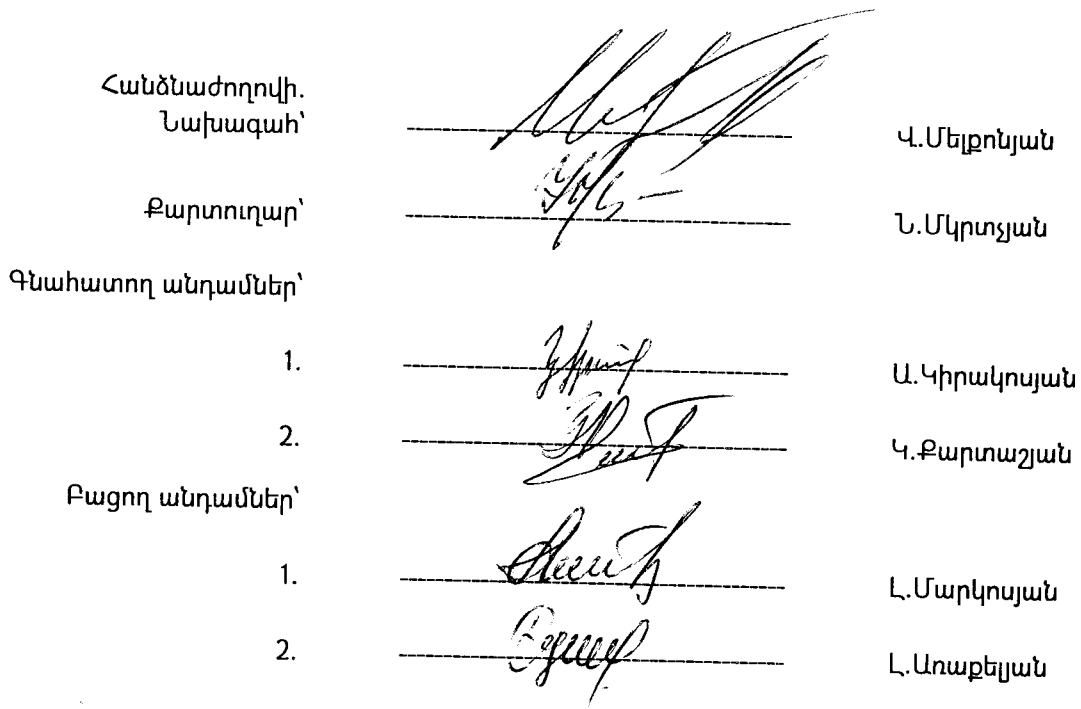 Հանձնաժողովի.
Նախագահ՝ Վ.Մելքոնյան
Քարտուղար՝ Ն.Մկրտչյան
Գնահատող անդամներ՝
1. Ա.Կիրակոսյան
2. Կ.Քարտաշյան
Բացող անդամներ՝
1. Լ.Մարկոսյան
2. Լ.Առաքելյան